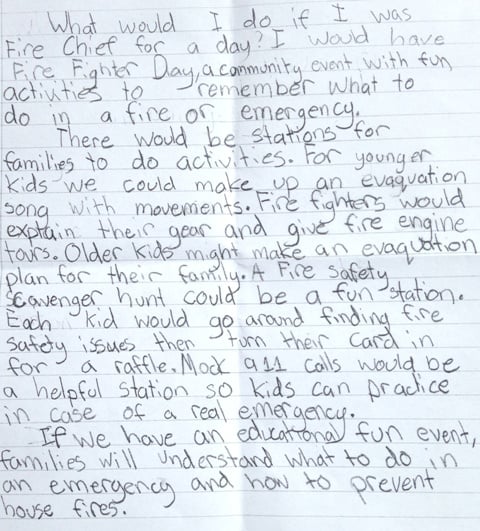 What would I do if I was
Fire Chief for a day? I would have
Fire Fighter Day, a community event with fun
activities to remember what to
do in a fire or emergency.
There would be stations for
families to do activities. For younger
kids we could make up an evaquation
song with movements. Fire fighters would
explain their gear and give fire engine
tours. Older kids might make an evaquation
plan for their family. A Fire safety
scavenger hunt could be a fun station.
Each kid would go around finding fire
safety issues then turn their card in
for a raffle. Mock 911 calls would be
a helpful station so kids can practice
in case of a real emergency.
If we have an educational fun event,
families will understand what to do in
an emergency and how to prevent
house fires.